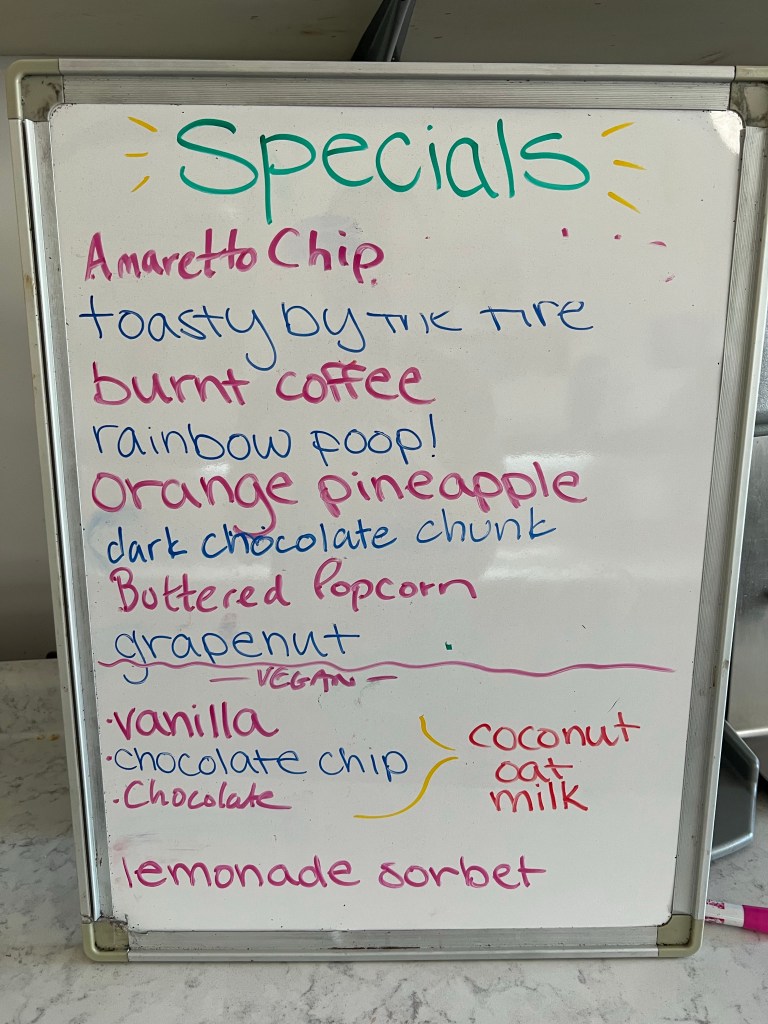 Specials
Amaretto Chip
toasty by the fire
burnt coffee
rainbow poop!
orange pineapple
dark chocolate chunk
Buttered Popcorn
grapenut
— VEGAN —
·vanilla
·chocolate chip
·Chocolate
coconut
oat
milk
lemonade sorbet